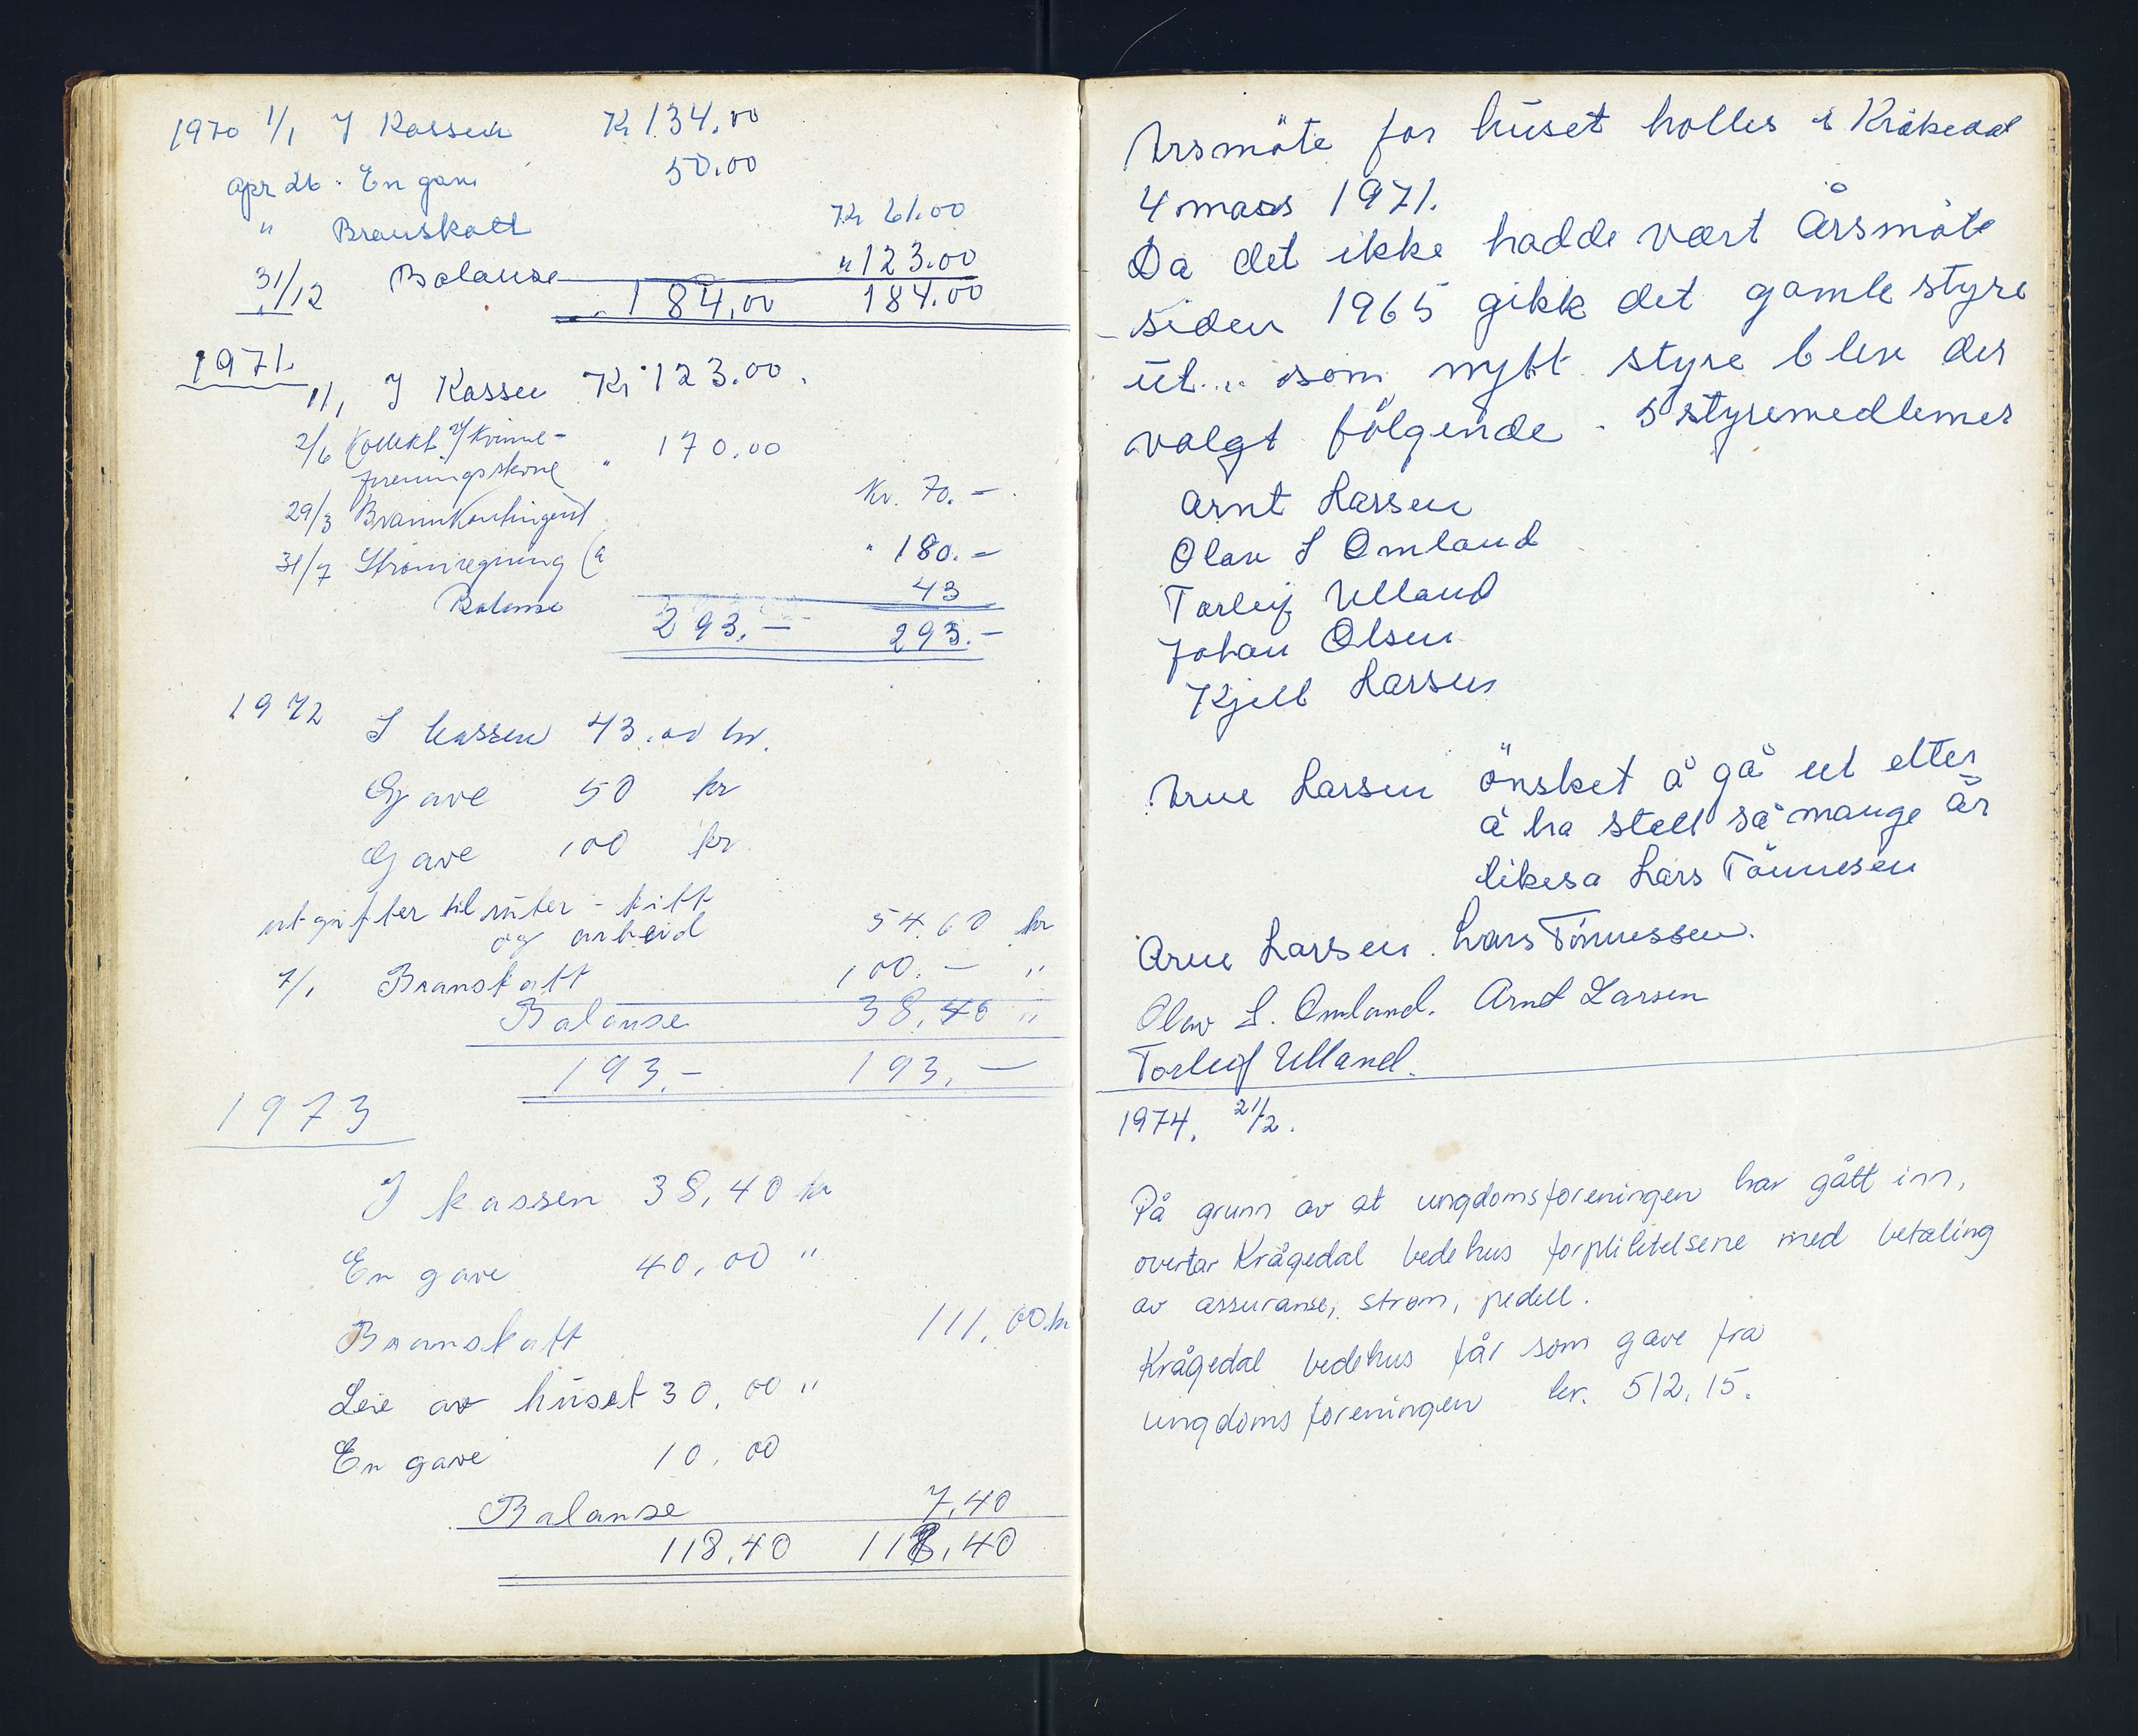 1970 1/1 I Kassen Kr 134.00
Apr 26. En gave 50.00
" Branskatt Kr 61.00
31/12 Balanse " 123.00
184,00 184.00
1971.
1/1, I Kassen Kr 123.00.
2/6 Kollekt v/ Kvinne-
foreningsskove " 170.00
29/3 Brannkontingent Kr. 70.-
31/7 Strömregning " 180.-
Balanse 43
293.- 293.-
1972 I kassen 43.00 kr.
Gave 50 kr
Gave 100 kr
utgifter til ruter - kitt
og arbeid 54.60 kr
7/1 Branskatt 100.- "
Balanse 38,40 "
193.- 193.-
1973
I kassen 38,40 kr
En gave 40,00 "
Branskatt 111,00 kr
Leie av huset 30,00 "
En gave 10.00
Balanse 7,40
118,40 118,40
Årsmöte for huset holles i Kråkedal
4 mars 1971.
Da det ikke hadde vært Årsmöte
siden 1965 gikk det gamle styre
ut... som nytt styre blev der
valgt fölgende. 5 styremedlemer
Arnt Larsen
Olav S Omland
Torleif Ulland
Johan Olsen
Kjell Larsen
Arne Larsen önsket å gå ut etter
å ha stell så mange år
likesa Lars Tönnesen
Arne Larsen. Lars Tönnessen.
Olav S. Omland. Arnt Larsen
Torleif Ulland.
1974. 21/2.
På grunn av at ungdomsforeningen har gått inn,
overtar Krågedal bedehus forplihtelsene med betaling
av assuranse, strøm, pedell.
Krågedal bedehus får som gave fra
ungdomsforeningen kr. 512,15.